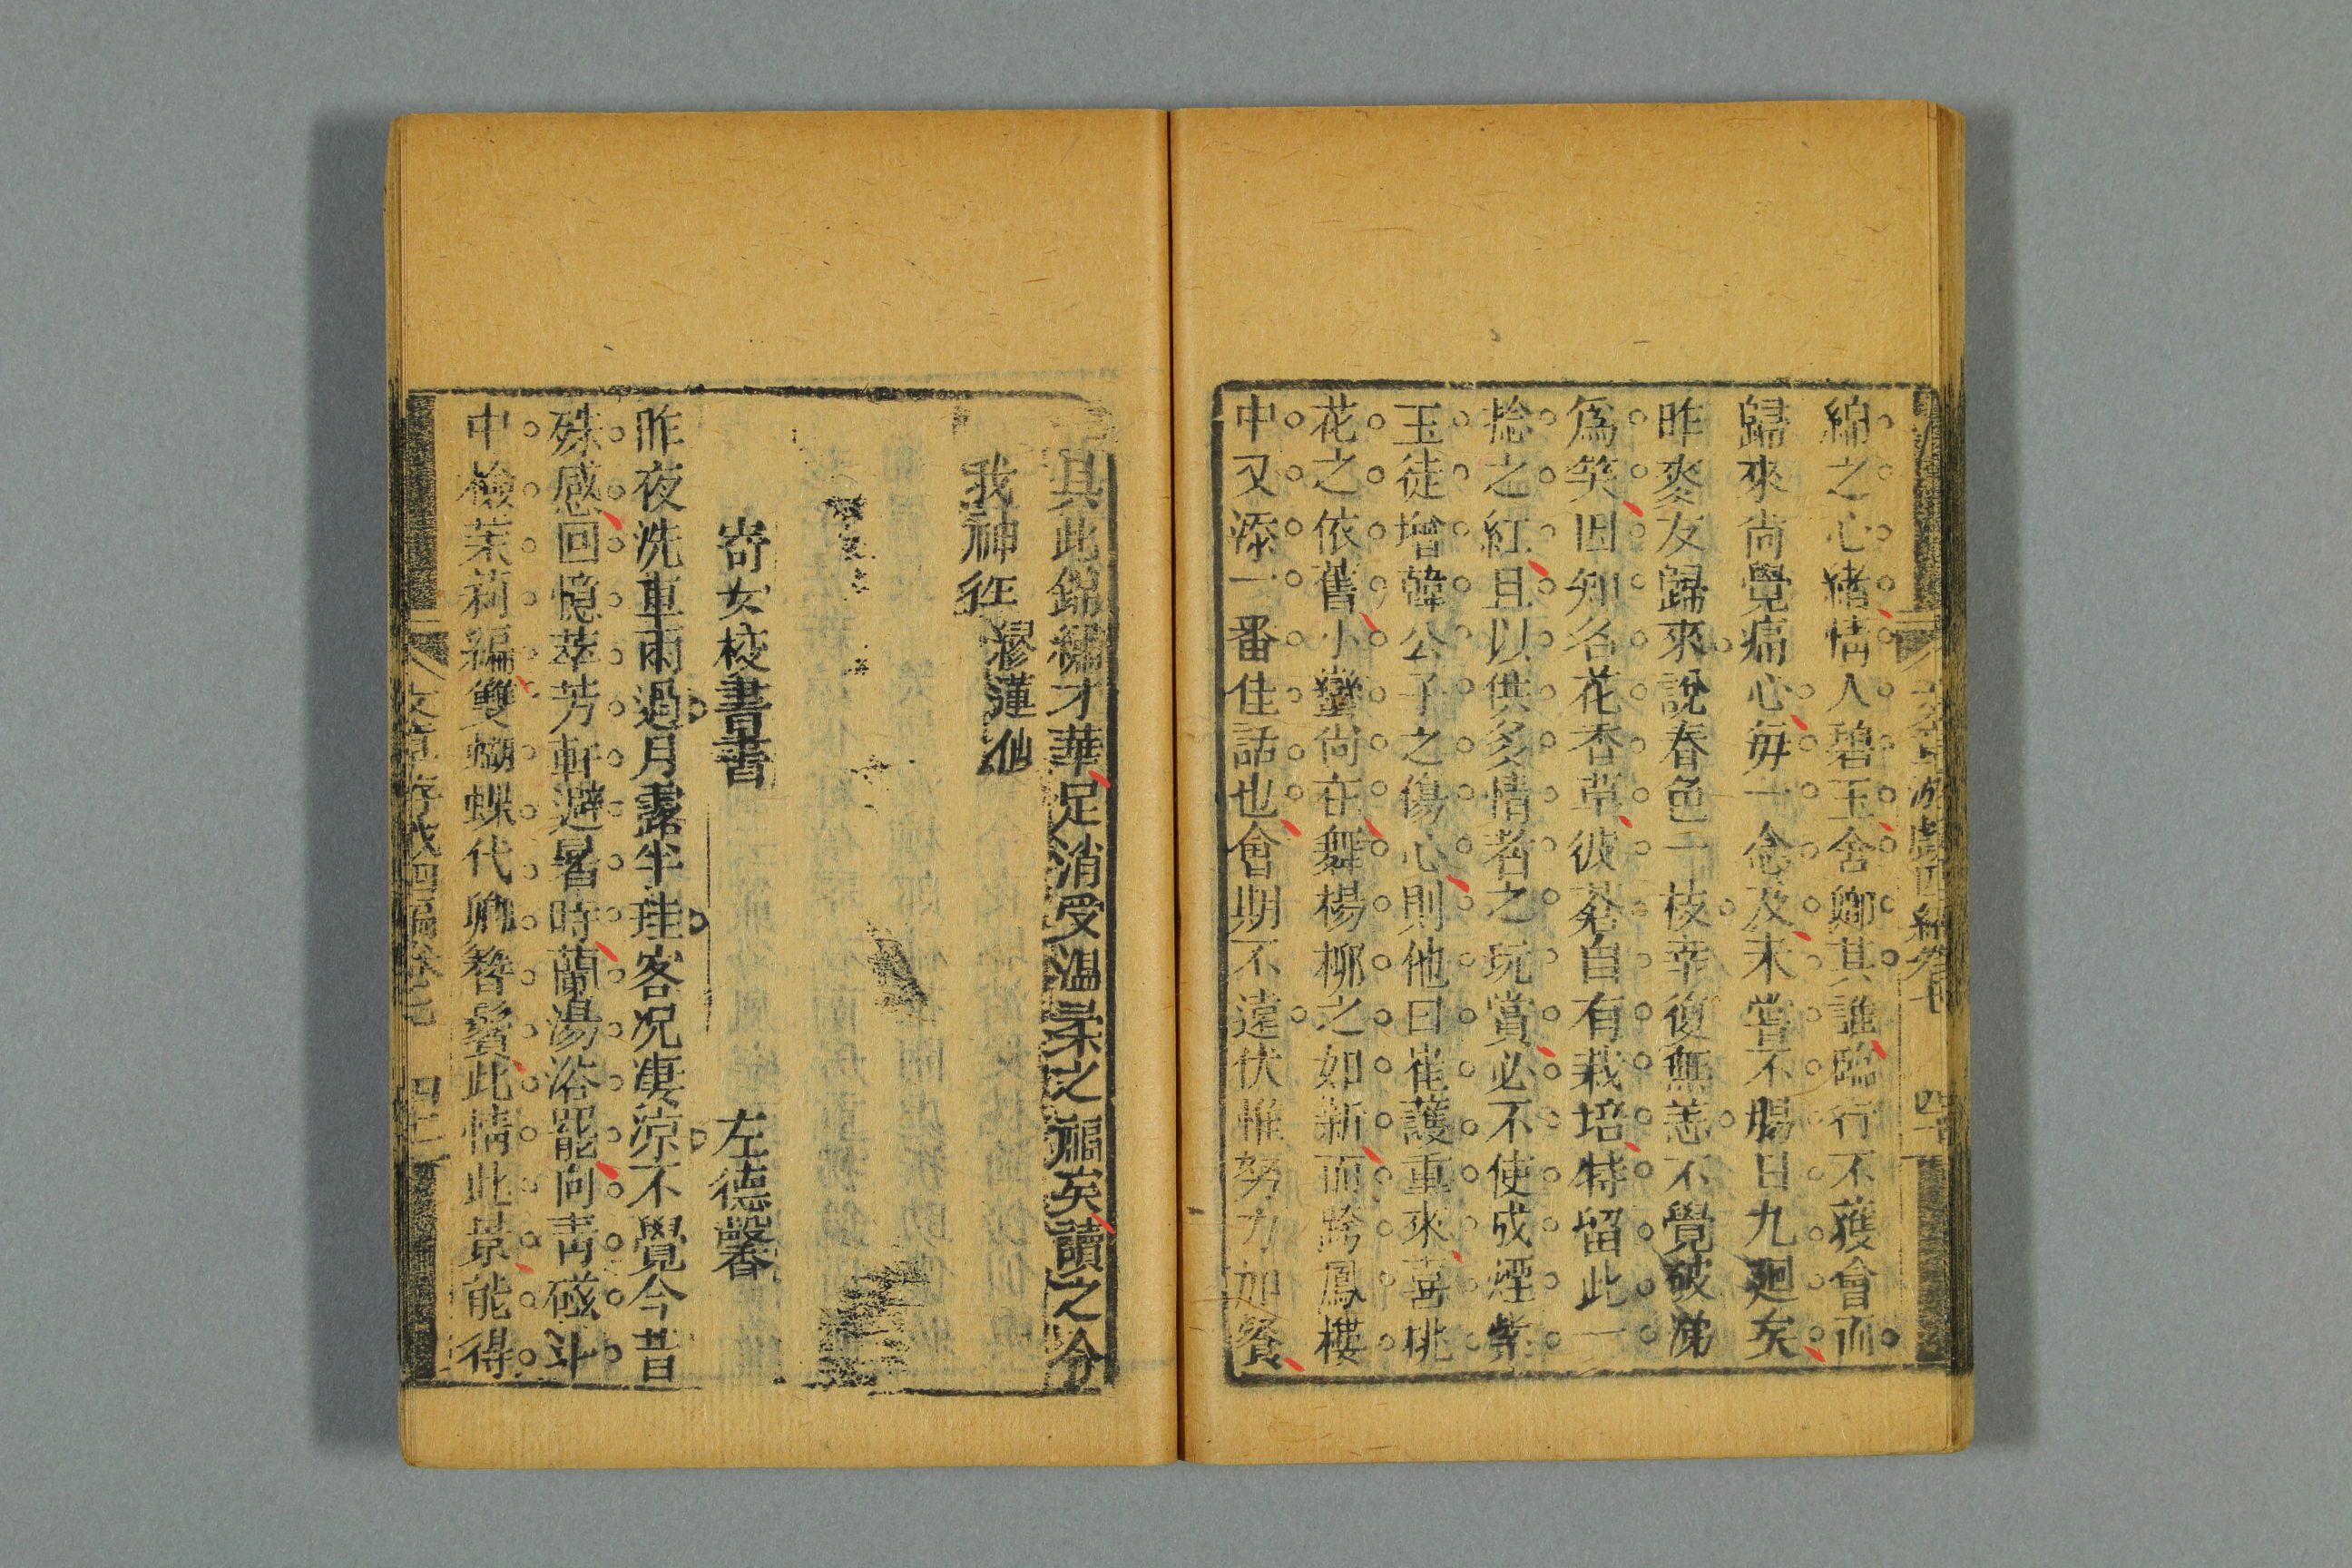 綿之心緒情人碧玉舍鄉其誰臨行不獲會而
歸來尚覺痛心每一念及未嘗不腸日九廻矣
昨麥友歸來說春色一枝幸復無恙不覺破涕
爲笑因知名花香草彼蒼自有栽培特留此一
捻之紅且以供多情者之玩賞必不使成煙紫
玉徒增韓公子之傷心則他日崔護重來喜桃
花之依舊小蠻尚在舞楊柳之如新而跨鳳樓
中又添一番佳話也會期不遠伏惟努力加餐
其此錦繡才華足消受溫柔之福矣讀之令
我神往 繆蓮仙
寄女校書書 左德馨
昨夜洗車雨過月露半珪客况凄涼不覺今昔
殊感回憶萃芳軒避暑時蘭湯浴罷向靑磁斗
中檢茉莉編雙蝴蝶代卿簪鬢此情此景能得